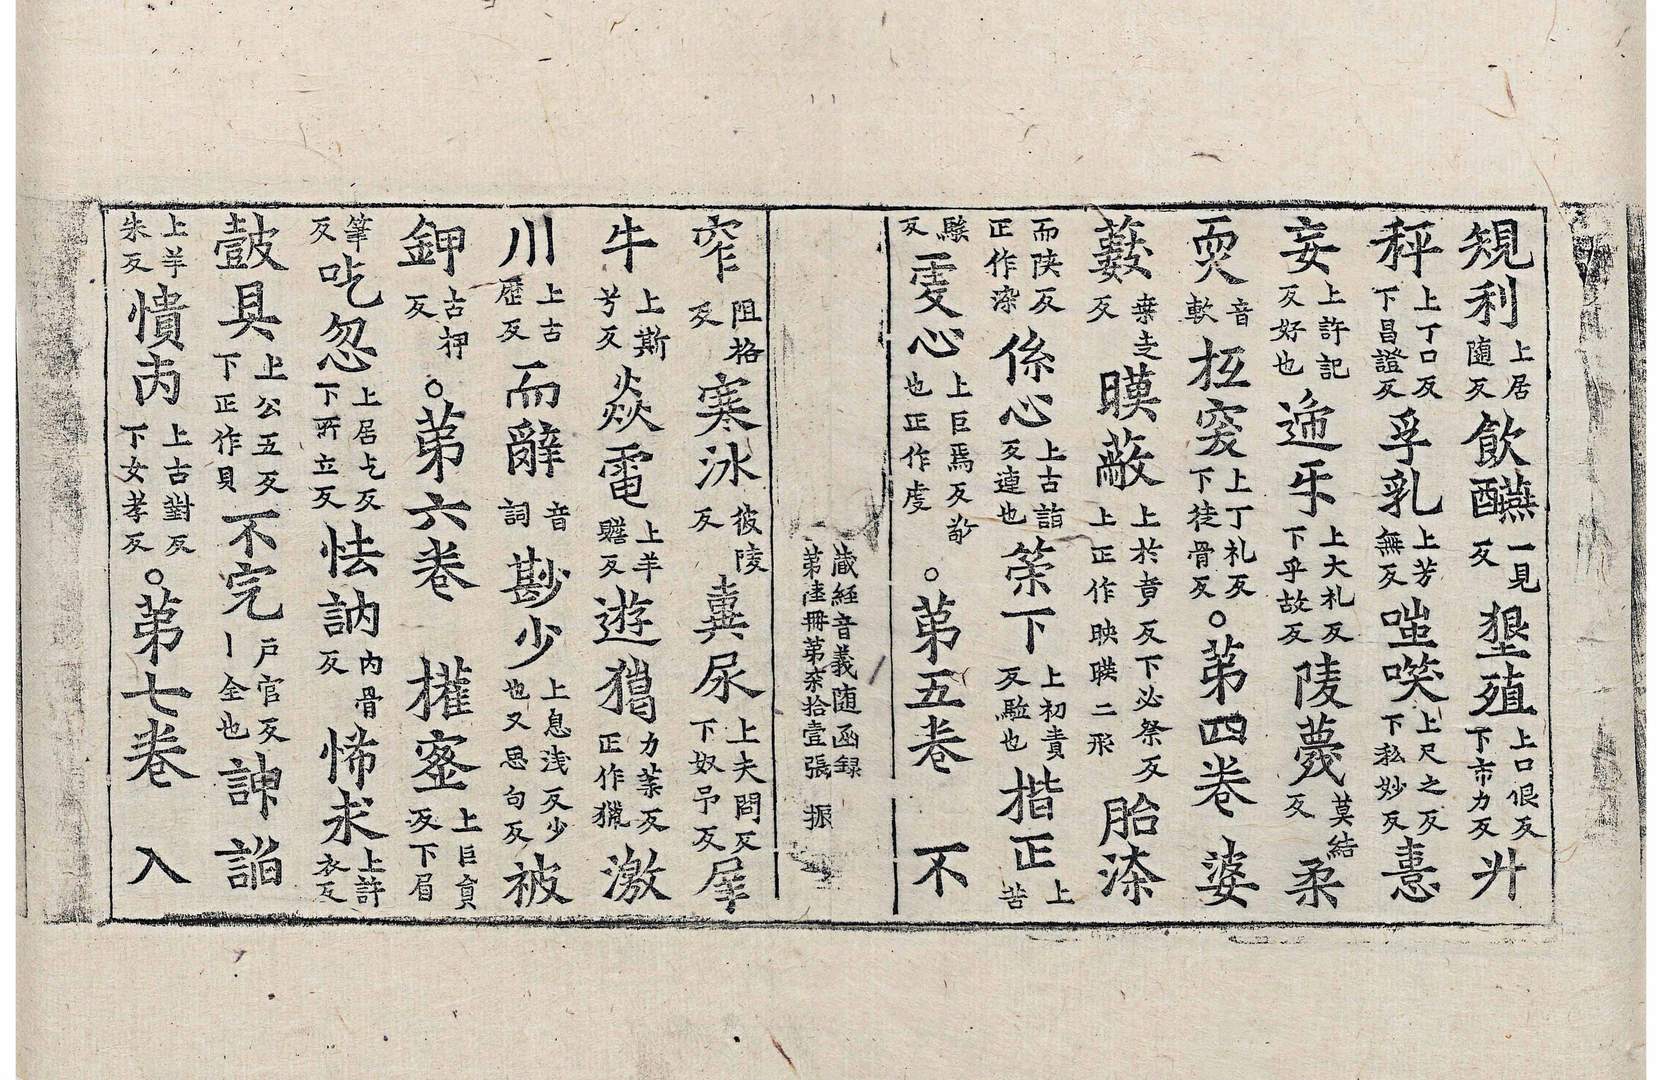 規利上居随反飲醼一見反墾殖上口佷反下市力反廾
秤上丁口反下昌證反孚乳上芳無反嗤唉上尺之反下私妙反憙
妄上許記反好也逓乐下乎故反上大礼反陵蔑莫結反柔
耎音軟抂突上丁礼反下徒骨反。第四卷婆
蘇桒走反暯蔽上於責反下必祭反上正作映暎二形胎㴃
而陕反正作染係心上古詣反連也䇿下上初責反駈也揩正上苦
騃反䖍心上巨焉反敬也正作虔。第五卷不
藏経音義随函録第陸冊第柒拾壹張振
窄阻格反寒冰彼陵反糞尿上夫問反下奴予反犀
牛上斯兮反焱電上羊贍反遊獦力葉反正作獵激
川上古歷反而辭音詞尠少上息浅反少也又思句反被
鉀古押反。第六卷 權宻上巨負反下眉
筆反吃忽上居乞反下所立反怯訥内骨反悕求上許衣反
鼓具上公五反下正作貝不完戶官反丨全也諛諂
上羊朱反憒丙上古對反下女孝反。第七卷入